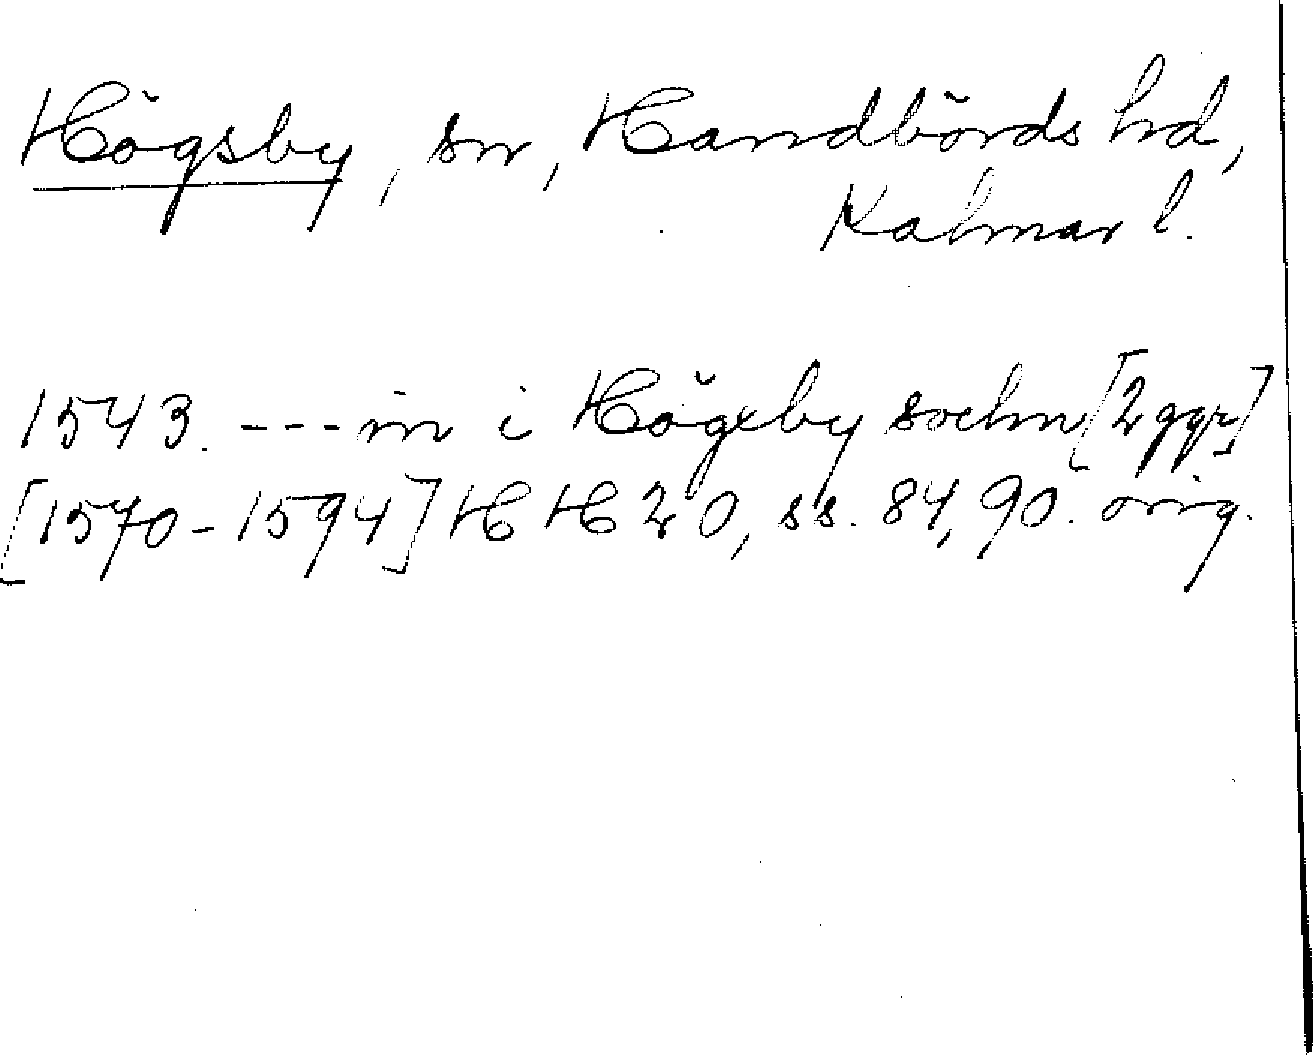 Högsby, sn, Handbörds hd,
Kalmar l.
1543. --- in i Högxby sochn [2 ggr]
[1570-1594] HH 20, ss. 84, 90. orig.